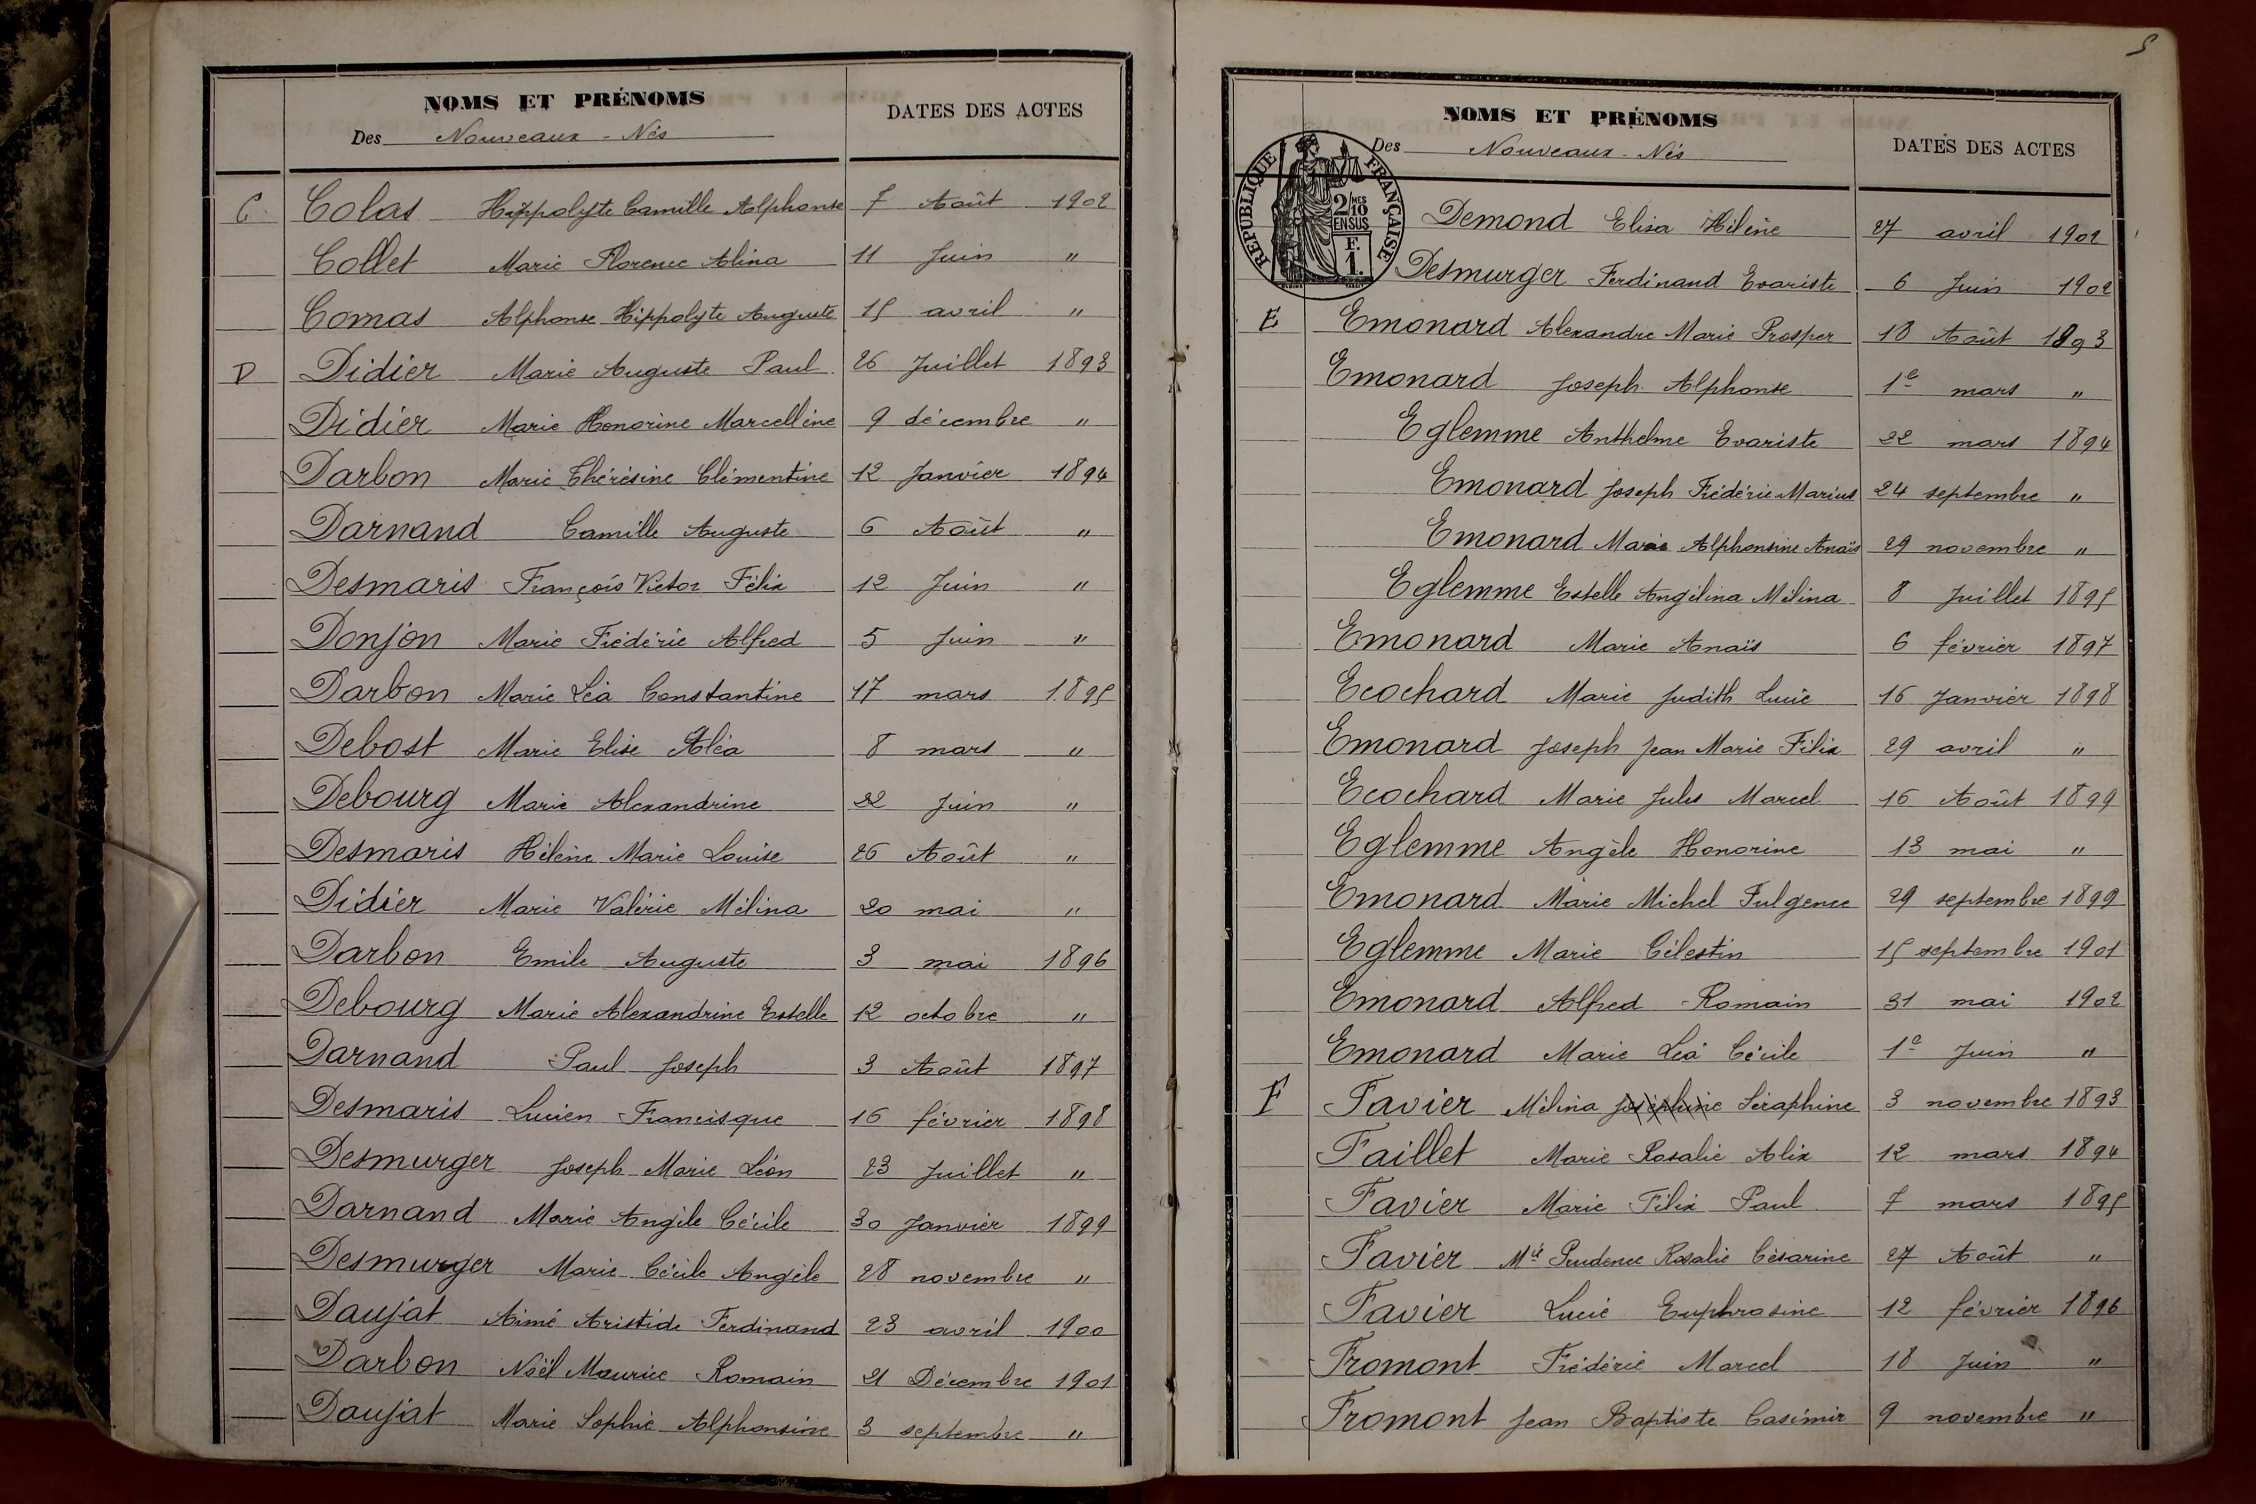 NOMS ET PRÉNOMS
DATES DES ACTES
Des Nouveaux-Nés
C. Colas Hippolyte Camille Alphonse 7 Août 1902
Collet Marie Florence Alina 11 Juin "
Comas Alphonse Hippolyte Auguste 15 avril "
D Didier Marie Auguste Paul 26 Juillet 1893
Didier Marie Honorine Marcelline 9 décembre "
Darbon Marie Thérésine Clémentine 12 Janvier 1894
Darnand Camille Auguste 6 Août "
Desmaris François Victor Félix 12 Juin "
Donjon Marie Frédéric Alfred 5 Juin "
Darbon Marie Léa Constantine 17 mars 1895
Debost Marie Elise Aléa 8 mars "
Debourg Marie Alexandrine 22 Juin "
Desmaris Hélène Marie Louise 26 Août "
Didier Marie Valérie Mélina 20 mai "
Darbon Emile Auguste 3 mai 1896
Debourg Marie Alexandrine Estelle 12 octobre "
Darnand Paul Joseph 3 Août 1897
Desmaris Lucien Francisque 16 février 1898
Desmurger Joseph Marie Léon 23 Juillet "
Darnand Marie Angèle Cécile 30 Janvier 1899
Desmurger Marie Cécile Angèle 28 novembre "
Daujat Aimé Aristide Ferdinand 23 avril 1900
Darbon Noël Maurice Romain 21 Décembre 1901
Daujat Marie Sophie Alphonsine 3 septembre "
5
NOMS ET PRÉNOMS
DATES DES ACTES
Des Nouveaux-Nés
RÉPUBLIQUE FRANÇAISE
2/10
MES
EN SUS
F.
1.
Demond Elisa Hélène 27 avril 1902
Desmurger Ferdinand Evariste 6 Juin 1902
E Emonard Alexandre Marie Prosper 18 Août 1893
Emonard Joseph Alphonse 1e mars "
Eglemme Anthelme Evariste 22 mars 1894
Emonard Joseph Frédéric Marius 24 septembre "
Emonard Marie Alphonsine Anaïs 29 novembre "
Eglemme Estelle Angélina Mélina 8 Juillet 1895
Emonard Marie Anaïs 6 février 1897
Ecochard Marie Judith Lucie 16 Janvier 1898
Emonard Joseph Jean Marie Félix 29 avril "
Ecochard Marie Jules Marcel 16 Août 1899
Eglemme Angèle Honorine 13 mai "
Emonard Marie Michel Fulgence 29 septembre 1899
Eglemme Marie Célestin 15 septembre 1901
Emonard Alfred Romain 31 mai 1902
Emonard Marie Léa Cécile 1e Juin "
F Favier Mélina Joséphine Séraphine 3 novembre 1893
Faillet Marie Rosalie Alix 12 mars 1894
Favier Marie Félix Paul 7 mars 1895
Favier Mie Prudence Rosalie Césarine 27 Août "
Favier Lucie Euphrosine 12 février 1896
Fromont Frédéric Marcel 18 Juin "
Fromont Jean Baptiste Casimir 9 novembre "